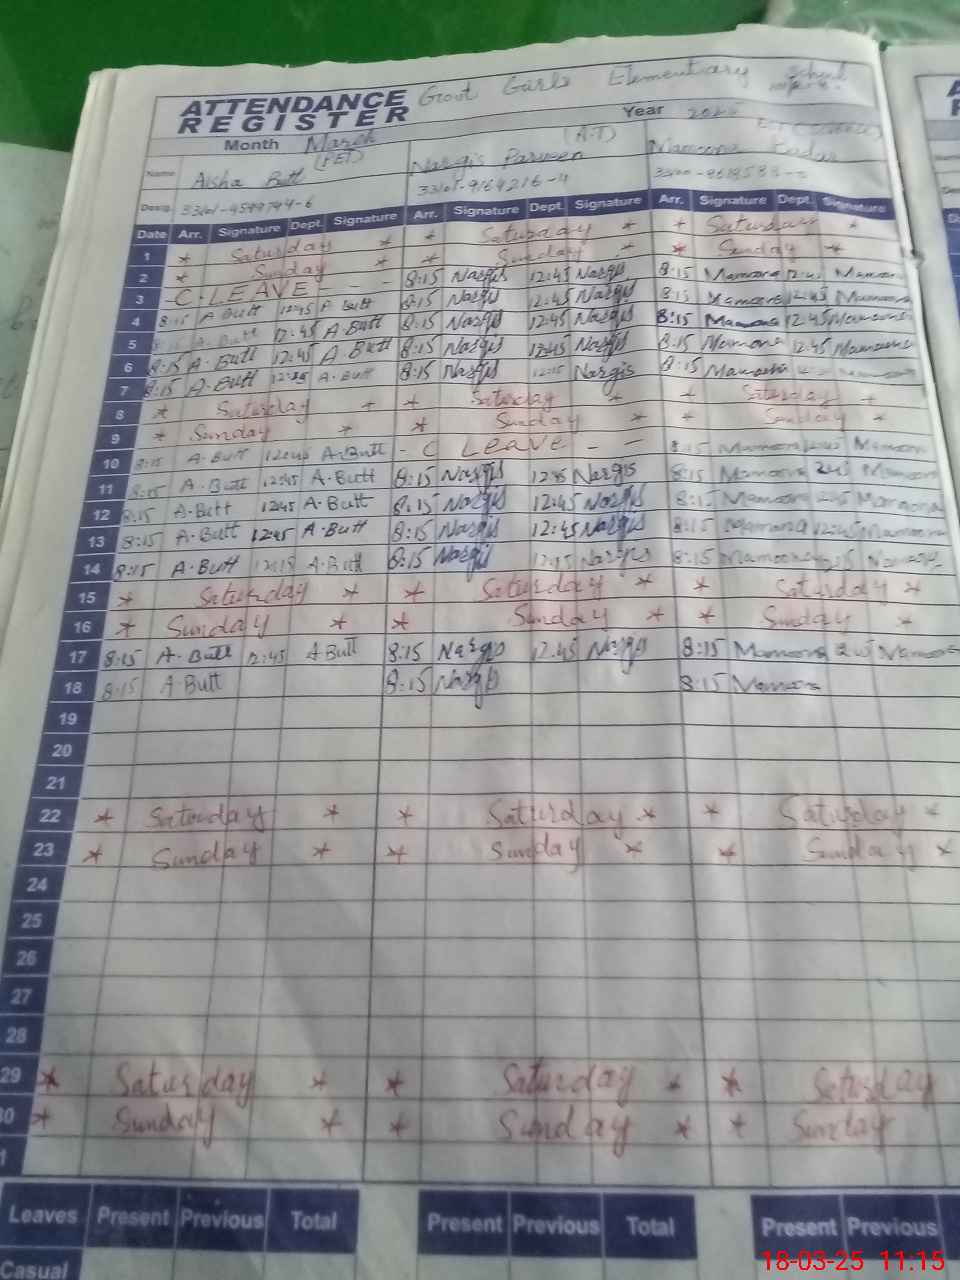 ATTENDANCE REGISTER Govt Girls Elementary School
Month March Year
Name Aisha Butt (PET) Nargis Parveen (A.T) Mamoona
Desig.
Date Arr. Signature Dept. Signature Arr. Signature Dept. Signature Arr. Signature Dept. Signature
1 * Saturday * * Saturday * * Saturday *
2 * Sunday * * Sunday * * Sunday *
3 - C. LEAVE - - 8:15 Nargis 12:45 Nargis 8:15 Mamoona 12:45 Mamoona
4 8:15 A Butt 12:45 A Butt 8:15 Nargis 12:45 Nargis 8:15 Mamoona 12:45 Mamoona
5 8:15 A. Butt 12:45 A Butt 8:15 Nargis 12:45 Nargis 8:15 Mamoona 12:45 Mamoona
6 8:15 A. Butt 12:45 A. Butt 8:15 Nargis 12:45 Nargis 8:15 Mamoona 12:45 Mamoona
7 8:15 A. Butt 12:45 A. Butt 8:15 Nargis 12:15 Nargis 8:15 Mamoona
8 * Saturday + + Saturday + + Saturday +
9 * Sunday * * Sunday * * Sunday *
10 8:15 A. Butt 12:45 A. Butt - C Leave - - 8:15 Mamoona 12:45 Mamoona
11 8:15 A. Butt 12:45 A. Butt 8:15 Nargis 12:45 Nargis 8:15 Mamoona 12:45 Mamoona
12 8:15 A. Butt 12:45 A. Butt 8:15 Nargis 12:45 Nargis 8:15 Mamoona 12:45 Mamoona
13 8:15 A. Butt 12:45 A. Butt 8:15 Nargis 12:45 Nargis 8:15 Mamoona 12:45 Mamoona
14 8:15 A. Butt 12:15 A. Butt 8:15 Nargis 12:15 Nargis 8:15 Mamoona Mamoona
15 * Saturday * * Saturday * * Saturday *
16 * Sunday * * Sunday * * Sunday *
17 8:15 A. Butt 12:45 A Butt 8:15 Nargis 12:45 Nargis 8:15 Mamoona 12:45 Mamoona
18 8:15 A. Butt 8:15 Nargis 8:15 Mamoona
19
20
21
22 * Saturday * * Saturday * * Saturday *
23 * Sunday * * Sunday * * Sunday *
24
25
26
27
28
29 * Saturday * * Saturday * * Saturday
30 * Sunday * * Sunday * * Sunday
Leaves Present Previous Total Present Previous Total Present Previous
Casual
18-03-25 11:15